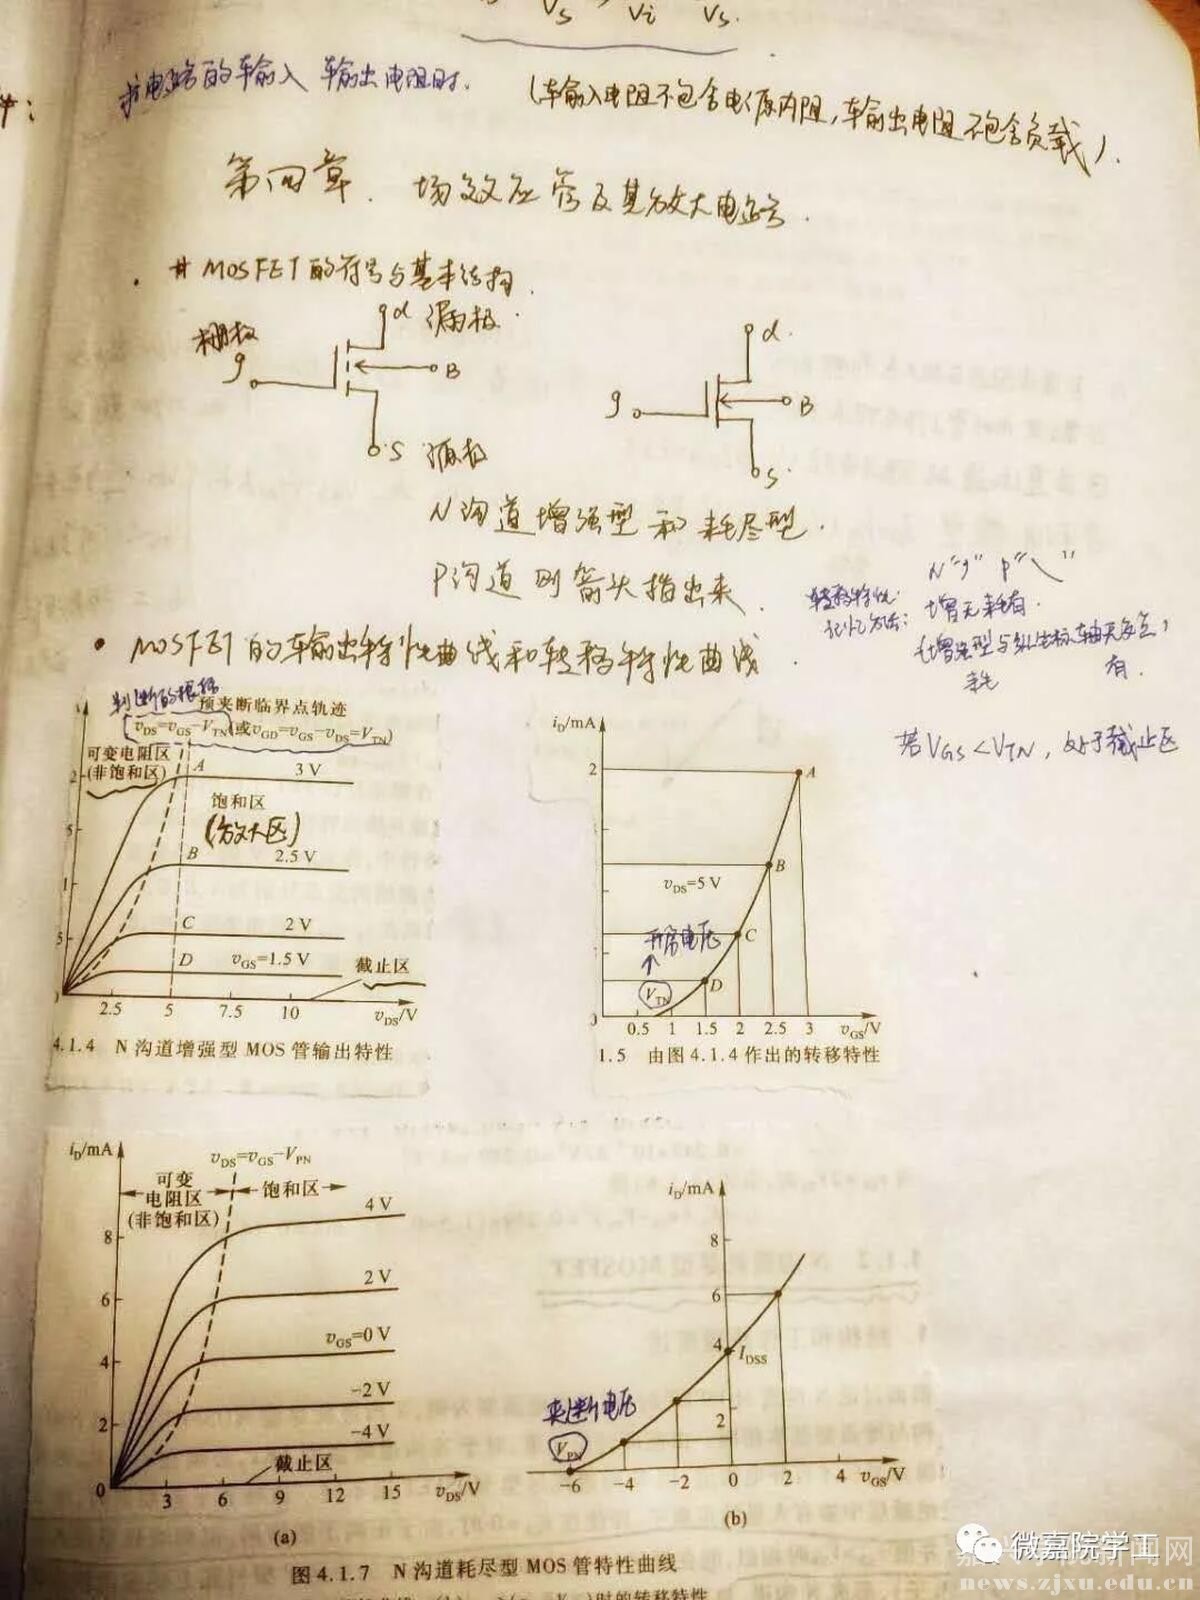 Vs Vi Vs.
求电路的输入 输出电阻时. (输入电阻不包含电源内阻,输出电阻不包含负载).
第四章. 场效应管及其放大电路.
# MOSFET的符号与基本结构.
d 漏极.
栅极
g
B
s 源极
d.
g
B
s.
N沟道增强型和耗尽型.
P沟道则箭头指出来.
转移特性.
记忆方法:
增无耗有.
(增强型与纵坐标轴无交点,
耗 有.
• MOSFET的输出特性曲线和转移特性曲线.
若VGS<VTN,处于截止区
判断的根据
预夹断临界点轨迹
vDS=vGS-VTN(或vGD=vGS-vDS=VTN)
可变电阻区
(非饱和区)
2
A
3 V
饱和区
(放大区)
B
2.5 V
1
C
2 V
D
vGS=1.5 V
截止区
2.5 5 7.5 10 vDS/V
4.1.4 N沟道增强型MOS管输出特性
iD/mA
2
A
B
vDS=5 V
开启电压
C
D
VTN
0.5 1 1.5 2 2.5 3 vGS/V
1.5 由图4.1.4作出的转移特性
iD/mA
vDS=vGS-VPN
可变
电阻区
(非饱和区)
饱和区
4 V
8
2 V
6
vGS=0 V
4
-2 V
2
-4 V
截止区
0 3 6 9 12 15 vDS/V
(a)
iD/mA
8
6
4
IDSS
2
夹断电压
VPN
-6 -4 -2 0 2 4 vGS/V
(b)
图4.1.7 N沟道耗尽型MOS管特性曲线
时的转移特性
微嘉院学工
news.zjxu.edu.cn